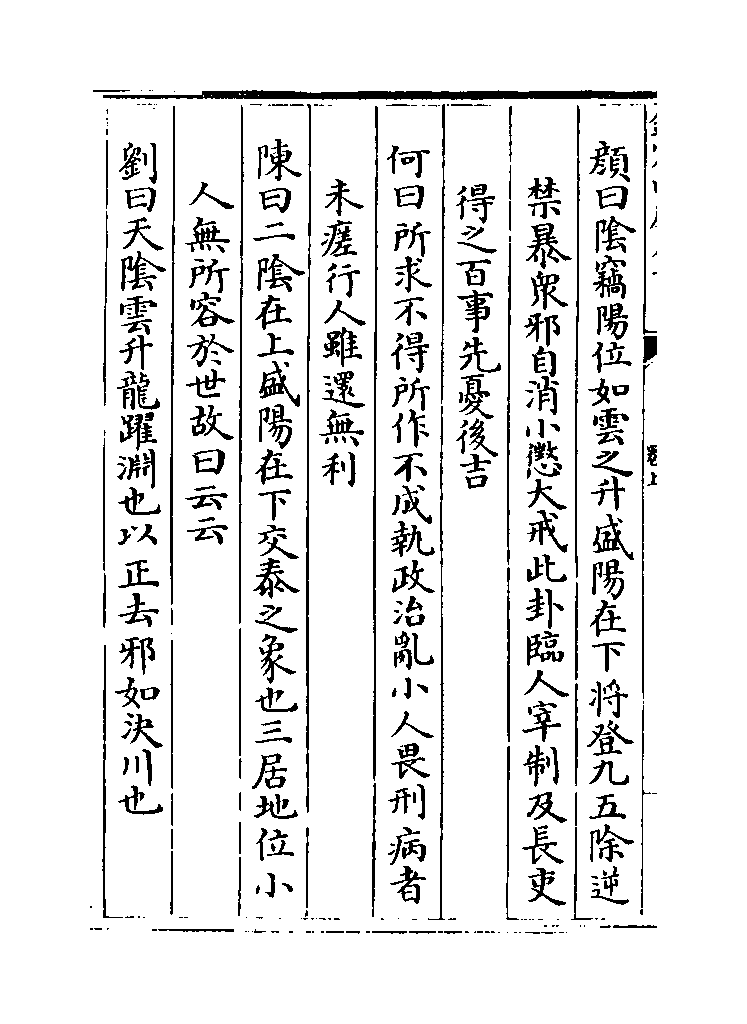 顔曰陰竊陽位如雲之升盛陽在下將登九五除逆
禁暴衆邪自消小懲大戒此卦臨人宰制及長吏
得之百事先憂後吉
何曰所求不得所作不成執政治亂小人畏刑病者
未瘥行人雖還無利
陳曰二陰在上盛陽在下交泰之象也三居地位小
人無所容於世故曰云云
劉曰天陰雲升龍躍淵也以正去邪如決川也